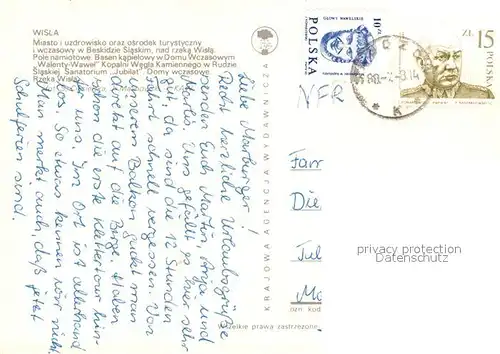 WISŁA
Miasto i uzdrowisko oraz ośrodek turystyczny
i wczasowy w Beskidzie Śląskim, nad rzeką Wisłą.
Pole namiotowe. Basen kąpielowy w Domu Wczasowym
"Walenty-Wawel" Kopalni Węgla Kamiennego w Rudzie
Śląskiej. Sanatorium "Jubilat". Domy wczasowe.
Rzeka Wisła
KRAJOWA AGENCJA WYDAWNICZA
Wszelkie prawa zastrzeżone
Liebe Marburger!
Recht herzliche Urlaubsgrüße
senden Euch Martin, Anja und
Marlis. Uns gefällt es hier sehr
gut, da sind die 12 Stunden
Fahrt schnell vergessen. Von
unserem Balkon guckt man
direkt auf die Berge. Haben
schon die erste Klettertour hin-
ter uns. Im Ort ist allerhand
los. So etwas kennen wir nicht.
Man merkt auch, daß jetzt
Schulferien sind.
POLSKA
10 ZŁ
ZŁ 15
POLSKA
88
14
K
VFR
Fam
Die
Jul
Ma
ozn. kod
privacy protection
Datenschutz